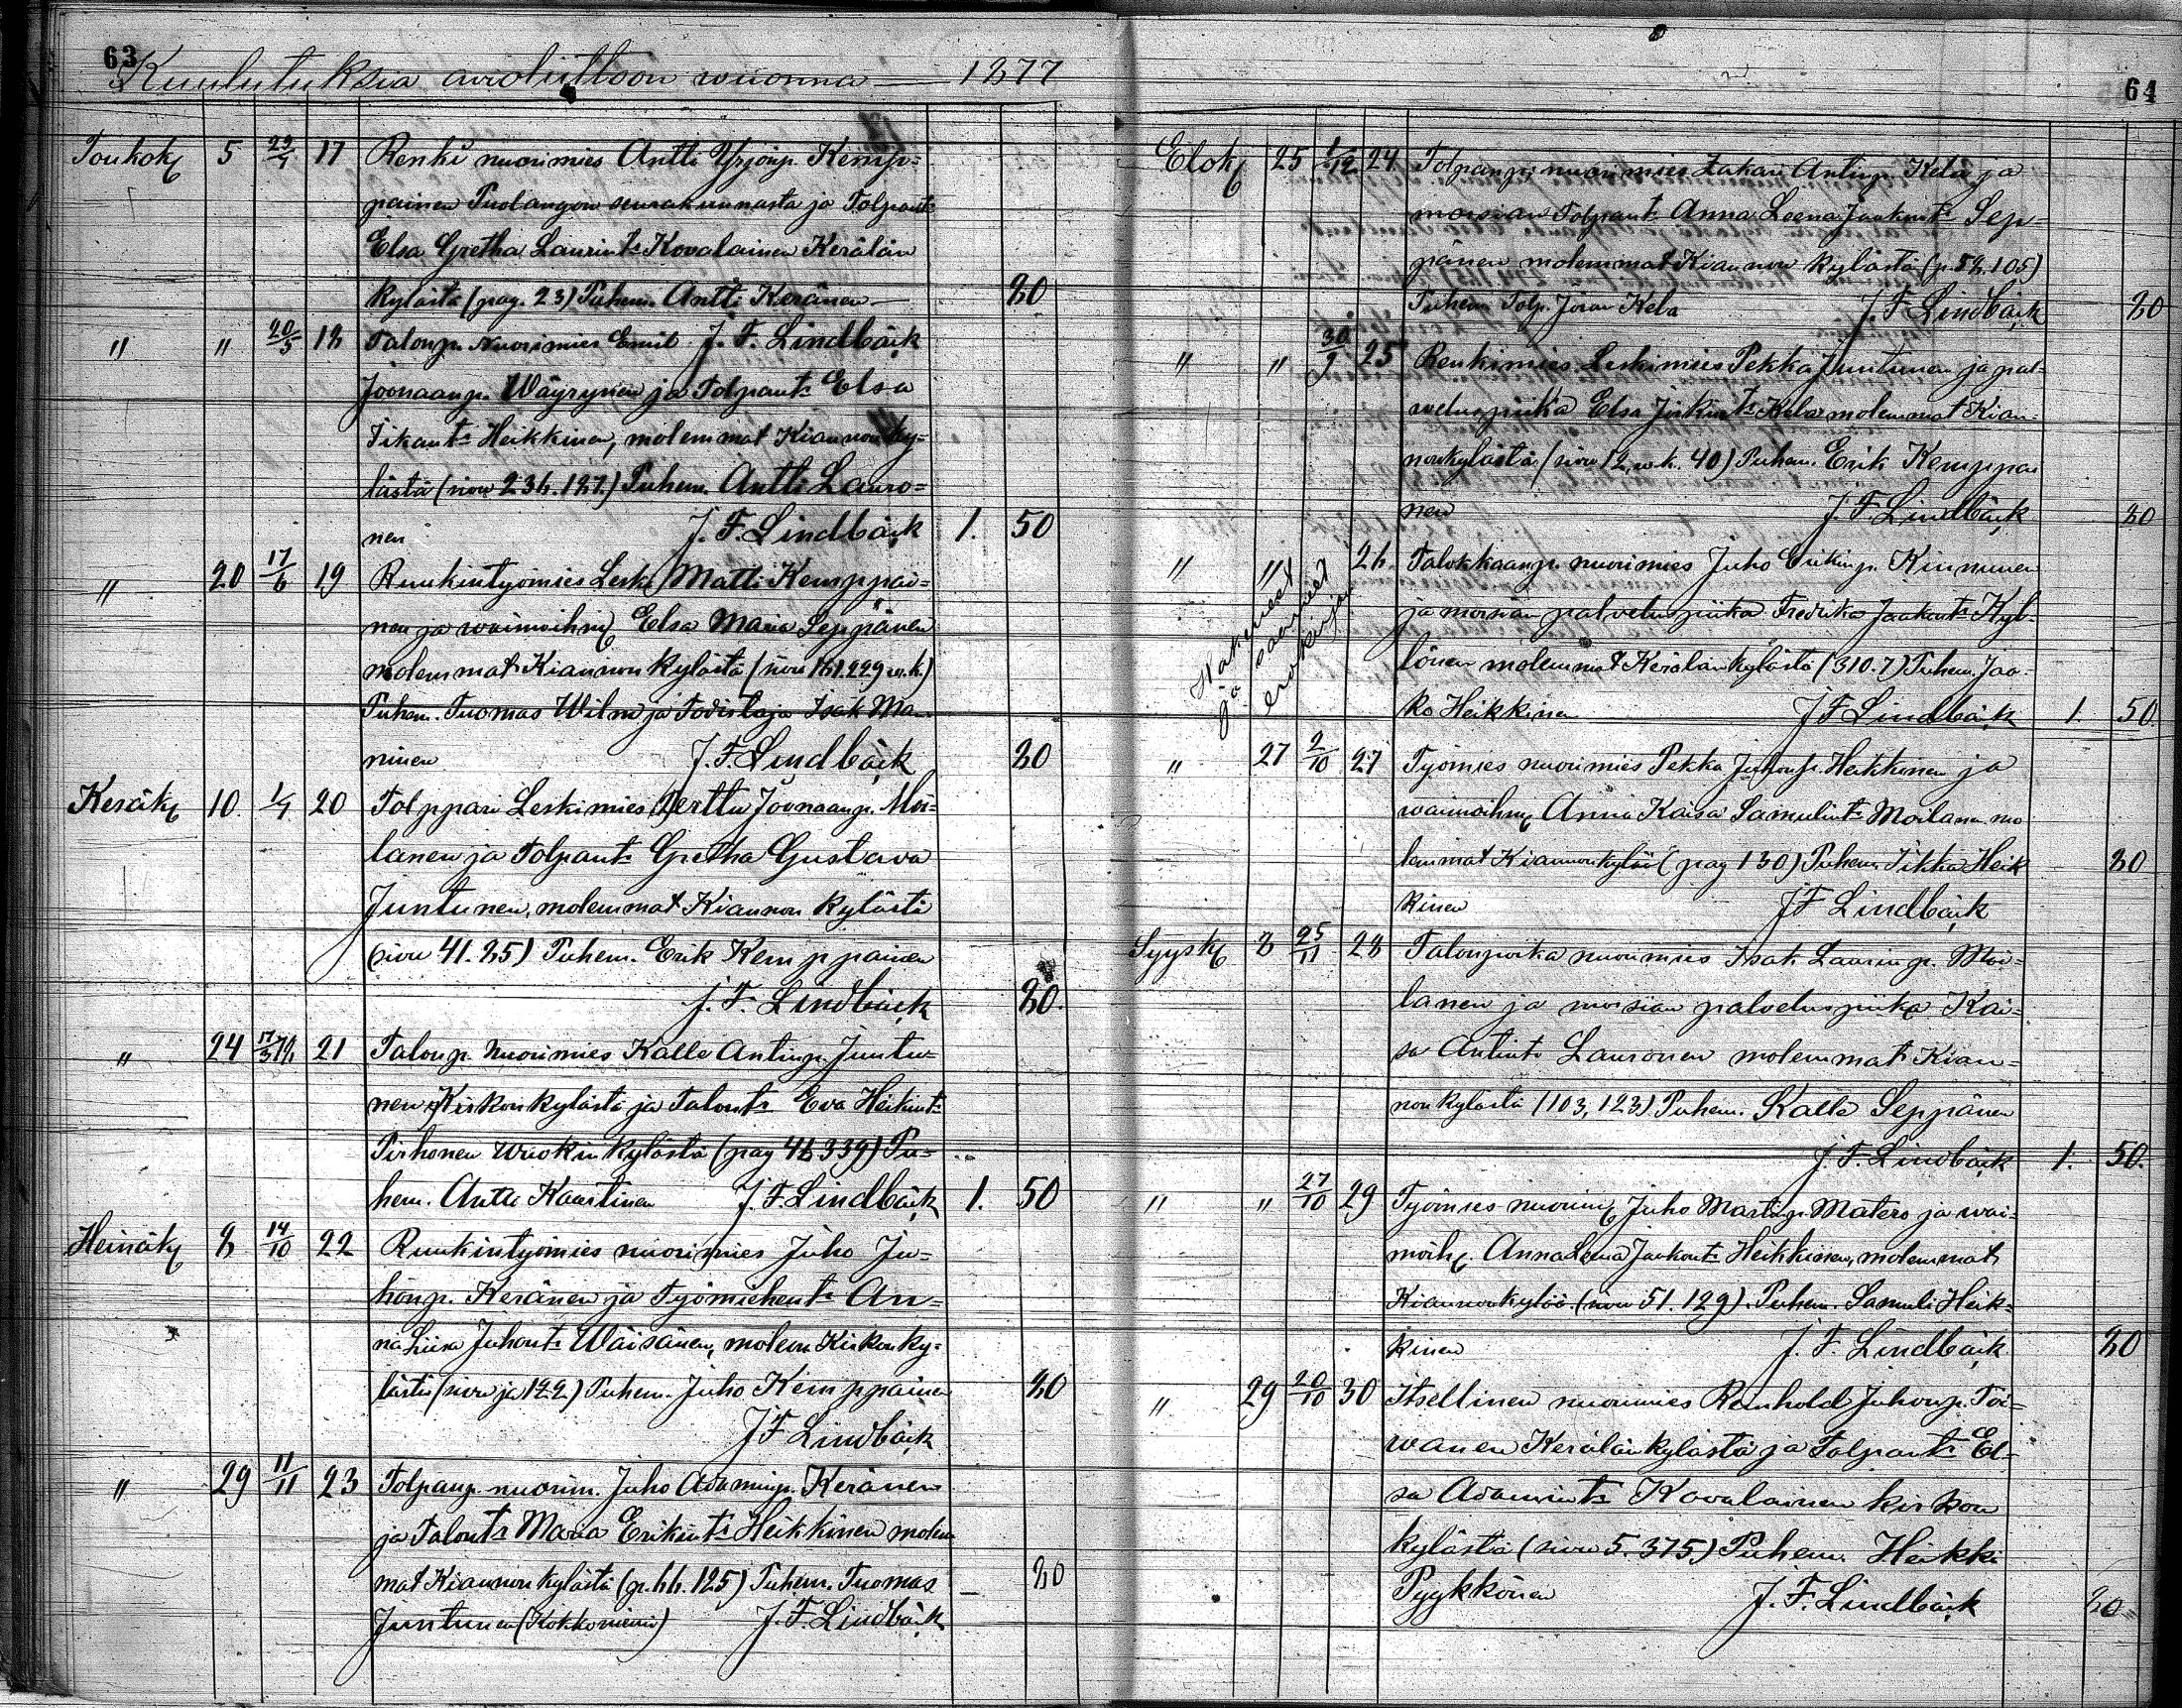 63
Kuulutuksia avioliittoon wuonna 1877
Toukok 5 29/7 17 Renki nuorimies Antti Yrjönp. Kemp=
painen Puolangon seurakunnasta ja Tolpant.
Elsa Gretha Laurint. Kovalainen Kerälän
kylästä (pag. 23) Puhem. Antti Keränen 80
" " 20/5 18 Talonp. Nuorimies Emil J. F. Lindbäck
Joonaanp. Wäyrynen ja Tolpant. Elsa
Iikant. Heikkinen, molemmat Kiannon ky=
lästä (sivu 236. 187.) Puhem. Antti Lauro=
nen J. F. Lindbäck 1. 50
" 20 17/6 19 Ruukintyömies Leski Matti Kemppai=
nen ja waimoihm Elsa Maria Seppänen
molemmat Kiannon kylästä (sivu 161.229 w.k.)
Puhem. Tuomas Wilm ja Todistaja Isak Man
ninen J. F. Lindbäck 80
Kesäk 10. 1/7 20 Tolppari Leskimies Perttu Joonaanp. Moi=
lanen ja Tolpant. Gretha Gustava
Juntunen, molemmat Kiannon kylästä
(sivu 41. 85) Puhem. Erik Kemppainen
J. F. Lindbäck 80.
" 24 21 Talonp. Nuorimies Kalle Antinp. Juntu=
nen Kirkonkylästä ja Talont. Eva Heikint.
Pirhonen Wuokin kylästä (pag 46 339) Pu=
hem. Antti Kaartinen J. F. Lindbäck 1. 50
Heinäk 8 14/10 22 Ruukintyömies nuorimies Juho Ju=
honp. Keränen ja Työmiehent. An=
na Liisa Juhont. Wäisänen, molem Kirkonky=
lästä (sivu ja 122) Puhem. Juho Kemppainen 80
J F Lindbäck
" 29 11/11 23 Tolpanp. nuorim. Juho Adaminp. Keränen
ja Talont. Maria Erikint. Heikkinen molem
mat Kiannon kylästä (p. 66. 125) Puhem. Tuomas 80
Juntunen (Kokkoniemi) J. F. Lindbäck
64
Elok 25 1/12 24 Tolpanp. nuorimies Zakari Antinp. Kela ja
morsian Tolpant. Anna Leena Jaakont. Sep=
pänen molemmat Kiannon kylästä (p. 52. 105)
Puhem Tolp. Joran Kela J. F. Lindbäck 80
" " 30/9 25 Renkimies Leskimies Pekka Juntunen ja pal=
weluspiika Elsa Kela molemmat Kian=
nonkylästä (sivu 12, w.k. 40) Puhem. Erik Kemppai
nen J. F. Lindbäck 80
" " 26. Talokkaanp. nuorimies Juho Erikinp. Kinnunen
Hakeneet
ja saaneet
erokirjan
ja morsian palveluspiika Fredrika Jaakont. Kyl=
lönen molemmat Kerälänkylästä (310. 7) Puhem. Jaa=
ko Heikkinen J F Lindbäck 1. 50
" 27 2/10 27 Työmies nuorimies Pekka Juhonp. Heikkinen ja
waimoihm Anna Kaisa Samulint. Moilanen mo
lemmat Kiannonkylää (pag 130) Puhem. Iikka Heik 80
kinen J F Lindbäck
Syysk 8 25/11 28 Talonpoika nuorimies Isak Laurinp. Moi=
lanen ja morsian palveluspiika Kai=
sa Antint. Lauronen molemmat Kian=
nonkylästä (103, 123) Puhem. Kalle Seppänen
J. F. Lindbäck 1. 50.
" " 27/10 29 Työmies nuorim Juho Martinp. Matero ja wai=
moih. Anna Leena Jaakont. Heikkinen, molemmat
Kiannonkylää. (sivu 51. 129). Puhem. Samuli Heik=
kinen J. F. Lindbäck 80
" 29 20/10 30 Itsellinen nuorimies Renhold Juhonp. Toi=
wanen Kerälänkylästä ja Tolpant. El=
sa Adamint. Kovalainen kirkon
kylästä (sivu 5. 375) Puhem. Heikki
Pyykkönen J. F. Lindbäck 80